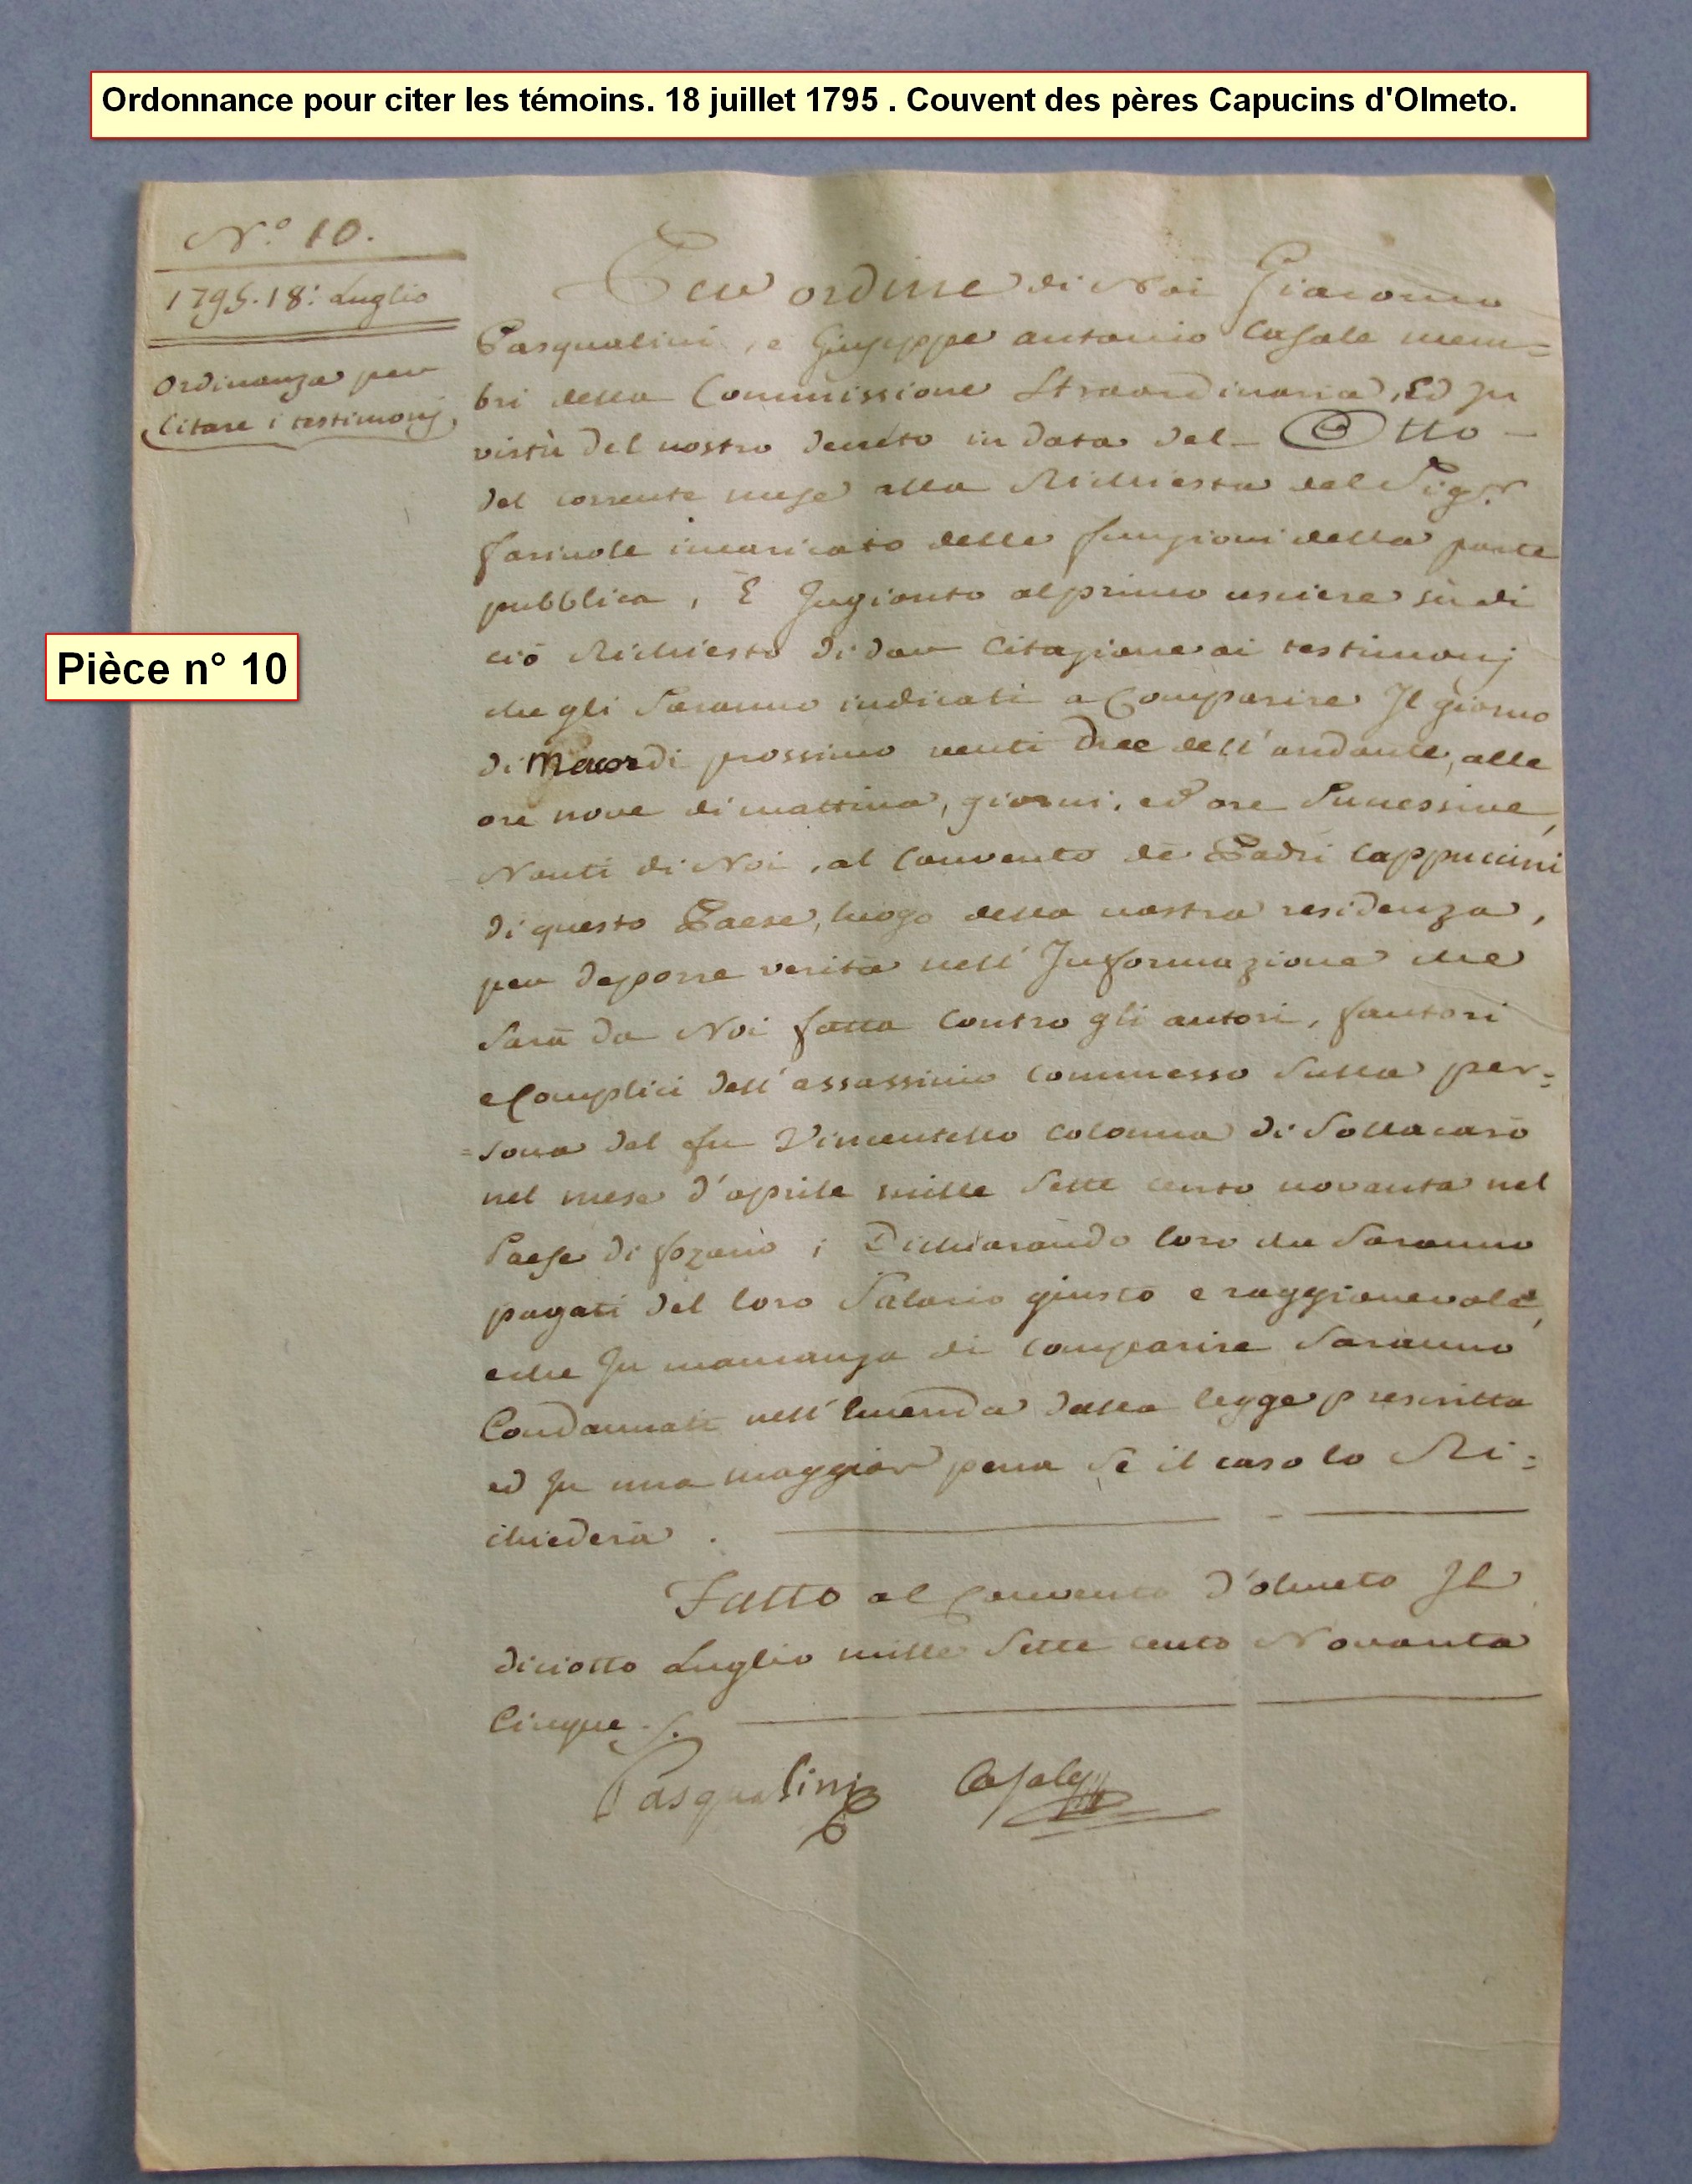 Ordonnance pour citer les témoins. 18 juillet 1795 . Couvent des pères Capucins d'Olmeto.
N.° 10.
1795. 18: Luglio
Ordinanza per
Citare i testimonj
Pièce n° 10
Per ordine di Noi Giacomo
Pasqualini, e Giuseppe antonio Casale mem=
bri della Commissione Straordinaria, Ed In
virtù del nostro decreto in data del - Otto -
del corrente mese alla Richiesta del Sig.r
farinole incaricato delle funzioni della parte
pubblica, È Ingionto al primo usciere sù di
ciò Richiesto di dar Citazione ai testimonj
che gli Saranno indicati a Comparire Il giorno
di Mercordi prossimo venti due dell'andante, alle
ore nove di mattina, giorni, ed ore Successive,
Nanti di Noi, al Convento dè Padri Cappuccini
di questo Paese, luogo della nostra residenza,
per deporre verità nell'Informazione che
Sarà da Noi fatta Contro gli autori, fautori
e Complici dell'assassinio Commesso Sulla per=
=sona del fu Vincentello Colonna di Sollacarò
nel mese d'aprile mille Sette cento novanta nel
Paese di fozanò ; Dichiarando loro che Saranno
pagati del loro Salario giusto e raggionevole,
e che In mancanza di Comparire Saranno
Condannati nell'Emenda dalla legge prescritta
ed In una maggior pena Se il caso lo Ri=
chiederà .
Fatto al Convento d'olmeto Il
diciotto Luglio mille Sette cento Novanta
Cinque ./.
Pasqualini Casale